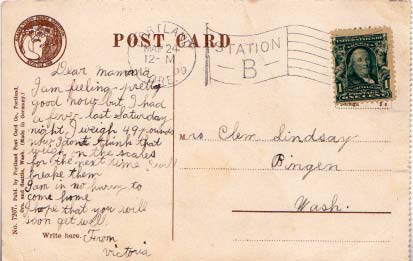 POST CARD
PORTLAND
MAR 24
12-M
1909
OREG.
STATION
B
Dear mamma
I am feeling pretty
good now but I had
a fever last Saturday
night. I weigh 49 pounds
now I don't think that
weigh on the scales
for the next time will
breake them
I am in no hurry to
come home
I hope that you will
soon get well
From
Victoria
Write here.
Mrs. Clem Lindsay
Bingen
Wash.
No. 7207. Publ. by Portland Post Card Co., Portland,
Ore. and Seattle, Wash. (Made in Germany.)